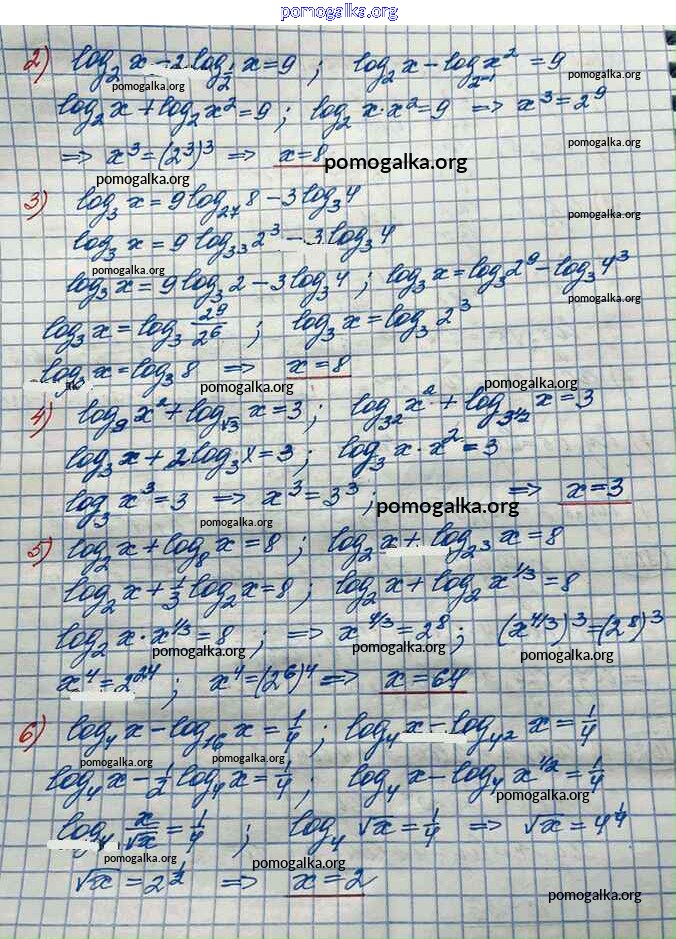 pomogalka.org
2) log₂ x − 2 log_{1/2} x = 9 ; log₂ x − log_{2⁻¹} x² = 9
pomogalka.org
pomogalka.org
log₂ x + log₂ x² = 9 ; log₂ x · x² = 9 ⇒ x³ = 2⁹
pomogalka.org
⇒ x³ = (2³)³ ⇒ x = 8
pomogalka.org
pomogalka.org
3) log₃ x = 9 log₂₇ 8 − 3 log₃ 4
pomogalka.org
log₃ x = 9 log_{3³} 2³ − 3 log₃ 4
pomogalka.org
log₃ x = 9 log₃ 2 − 3 log₃ 4 ; log₃ x = log₃ 2⁹ − log₃ 4³
pomogalka.org
log₃ x = log₃ 2⁹/2⁶ ; log₃ x = log₃ 2³
log₃ x = log₃ 8 ⇒ x = 8
pomogalka.org
pomogalka.org
4) log₉ x² + log_{√3} x = 3 ; log_{3²} x² + log_{3^{1/2}} x = 3
log₃ x + 2 log₃ x = 3 ; log₃ x · x² = 3
log₃ x³ = 3 ⇒ x³ = 3³ ; ⇒ x = 3
pomogalka.org
pomogalka.org
5) log₂ x + log₈ x = 8 ; log₂ x + log_{2³} x = 8
log₂ x + 1/3 log₂ x = 8 ; log₂ x + log₂ x^{1/3} = 8
log₂ x · x^{1/3} = 8 ; ⇒ x^{4/3} = 2⁸ ; (x^{4/3})³ = (2⁸)³
pomogalka.org
pomogalka.org
pomogalka.org
x⁴ = 2²⁴ ; x⁴ = (2⁶)⁴ ⇒ x = 64
6) log₄ x − log₁₆ x = 1/4 ; log₄ x − log_{4²} x = 1/4
pomogalka.org
log₄ x − 1/2 log₄ x = 1/4 ; log₄ x − log₄ x^{1/2} = 1/4
pomogalka.org
log₄ x/√x = 1/4 ; log₄ √x = 1/4 ⇒ √x = 4^{1/4}
pomogalka.org
pomogalka.org
√x = 2^{1/2} ⇒ x = 2
pomogalka.org